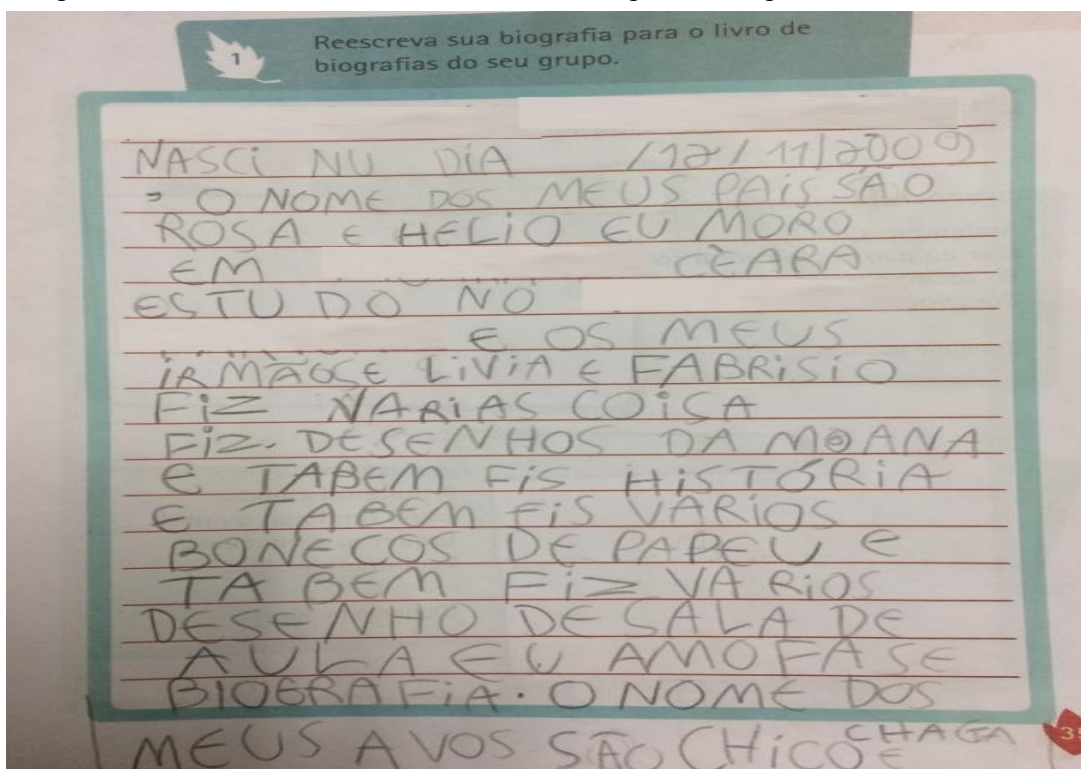 1
Reescreva sua biografia para o livro de
biografias do seu grupo.
NASCI NU DIA /17/11/2009
, O NOME DOS MEUS PAIS SÃO
ROSA E HELIO EU MORO
EM CEARA
ESTUDO NO
E OS MEUS
IRMÃOSE LIVIA E FABRISIO
FIZ VARIAS COISA
FIZ. DESENHOS DA MOANA
E TABEM FIS HISTÓRIA
E TABEM FIS VARIOS
BONECOS DE PAPEU E
TABEM FIZ VARIOS
DESENHO DE SALA DE
AULA EU AMO FASE
BIOGRAFIA. O NOME DOS
MEUS AVOS SÃO CHICO CHAGA
E